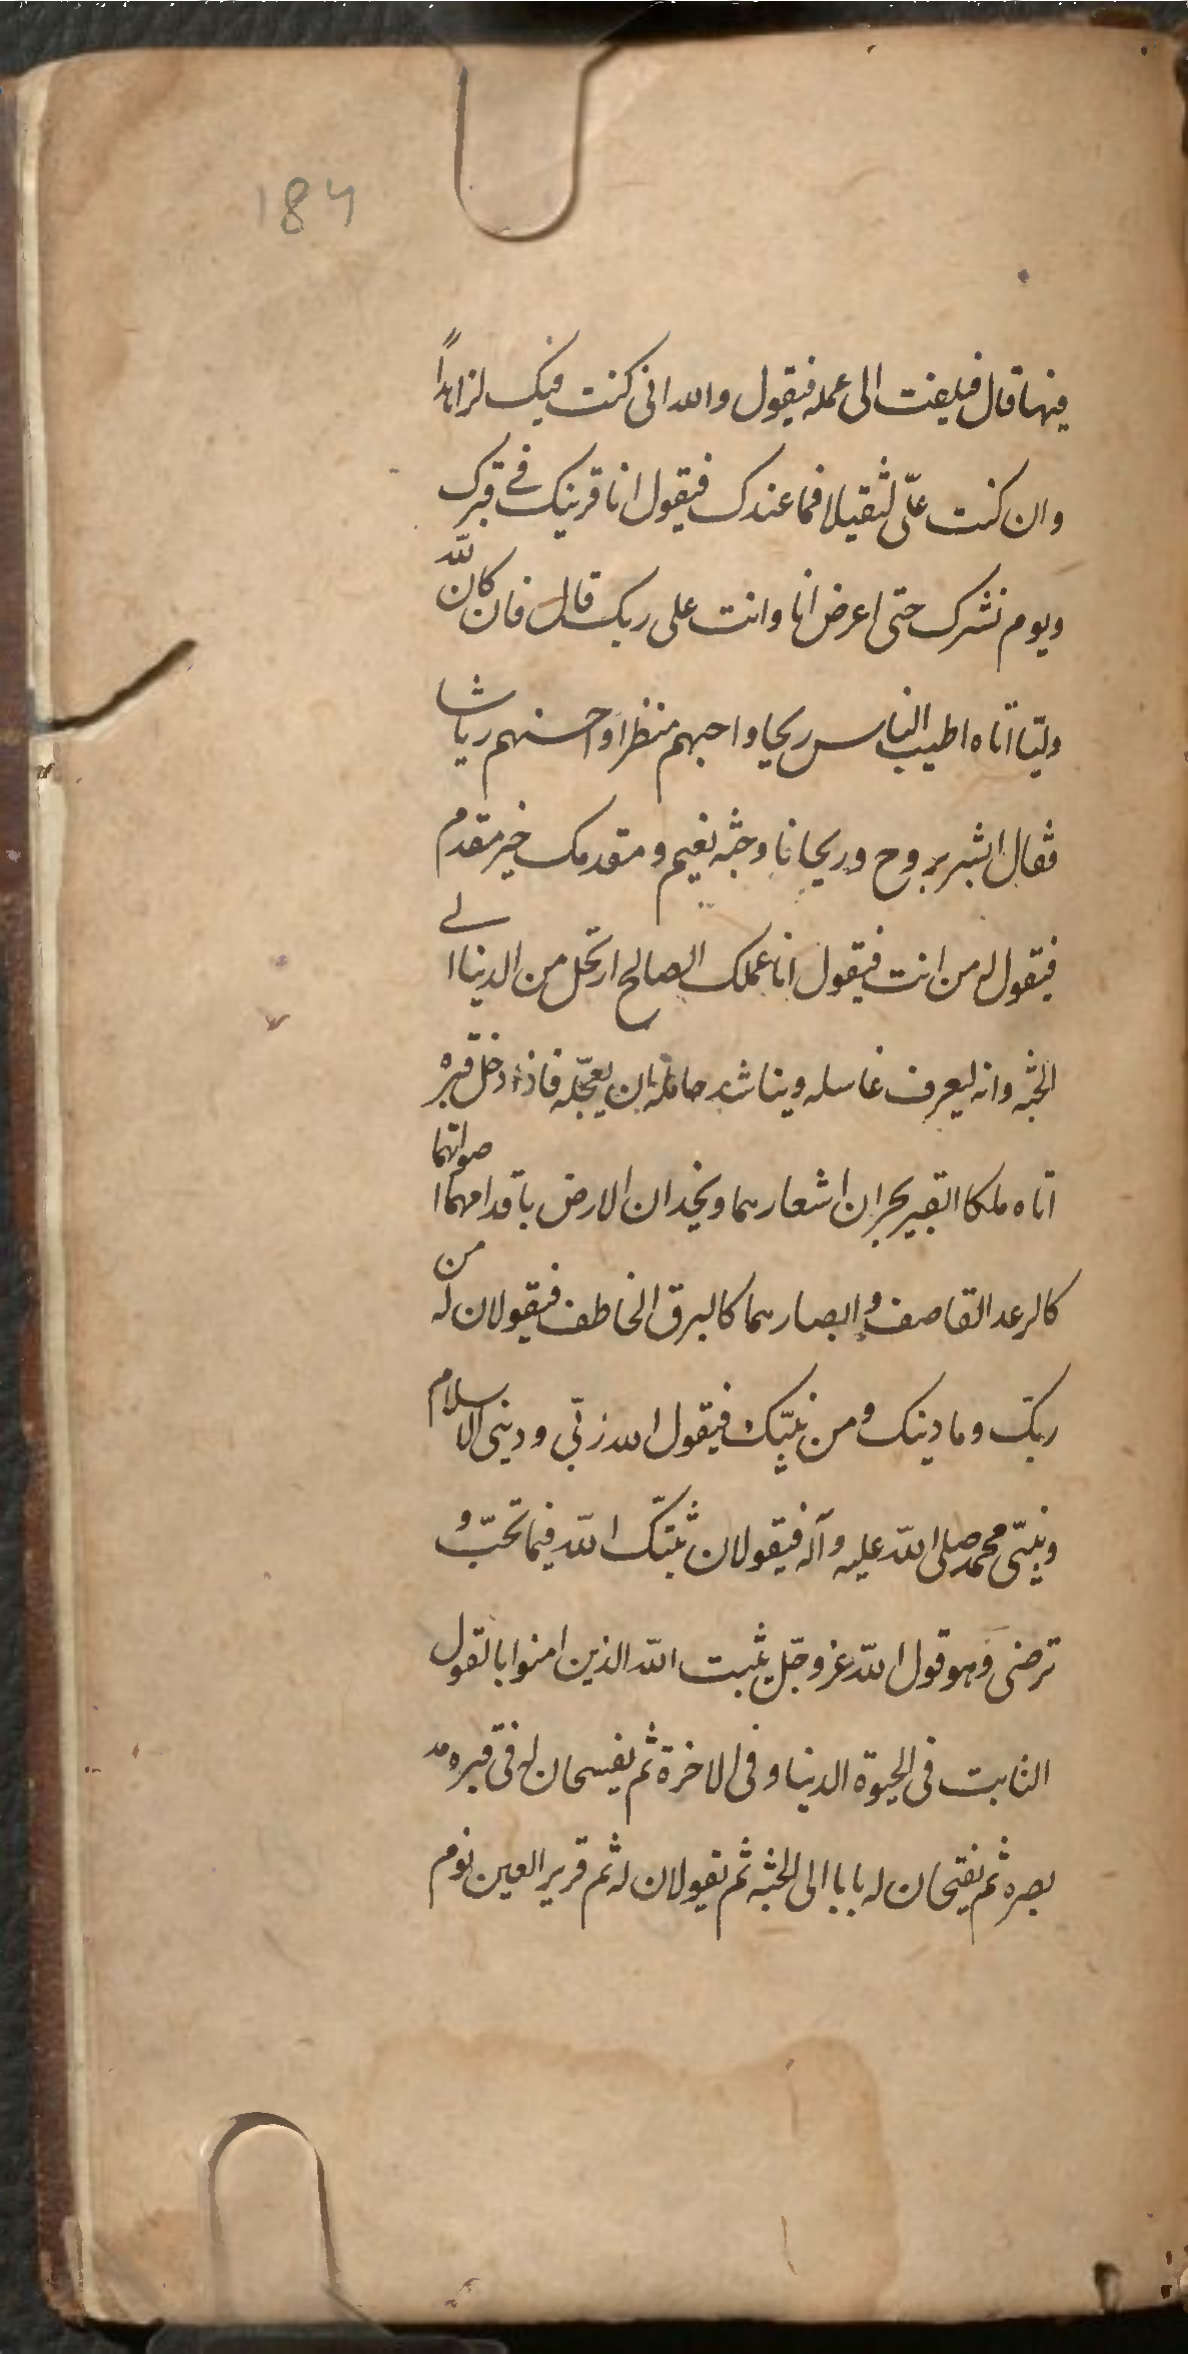 184
فيها قال فيلفت الى عمله فيقول والله انى كنت فيك لزاهداً
وان كنت علىّ لثقيلا فما عندك فيقول انا قرينك فے قبرك
ويوم نشرك حتى اعرض انا وانت على ربك قال فان كان للّه
وليّا اتاه اطيب الناس ريحا واحبهم منظرا واحسنهم رياشا
فقال ابشر بروح وريحانا وجنّه نعيم ومقدمك خير مقدم
فيقول له من انت فيقول انا عملك الصالح ارتحل من الدنيا الے
الجنّه وانه ليعرف غاسله ويناشد حامله ان يعجّله فاذا دخل قبره
اتاه ملكا القبر يجران اشعارهما ويخدان الارض باقدامهما اصواتهما
كالرعد القاصف وابصارهما كالبرق الخاطف فيقولان له من
ربك وما دينك ومن نبيّك فيقول الله ربّي ودينى الاسلام
ونبيّى محمد صلى اللّه عليه وآله فيقولان ثبّتك اللّه فيما تحبّ و
ترضى وهو قول اللّه عز وجلّ يثبت اللّه الذين امنوا بالقول
الثابت فى الحيوة الدنيا وفى الاخرة ثم يفسحان له فى قبره مد
بصره ثم يفتحان له بابا الى الجنّه ثم يقولان له نم قرير العين نوم